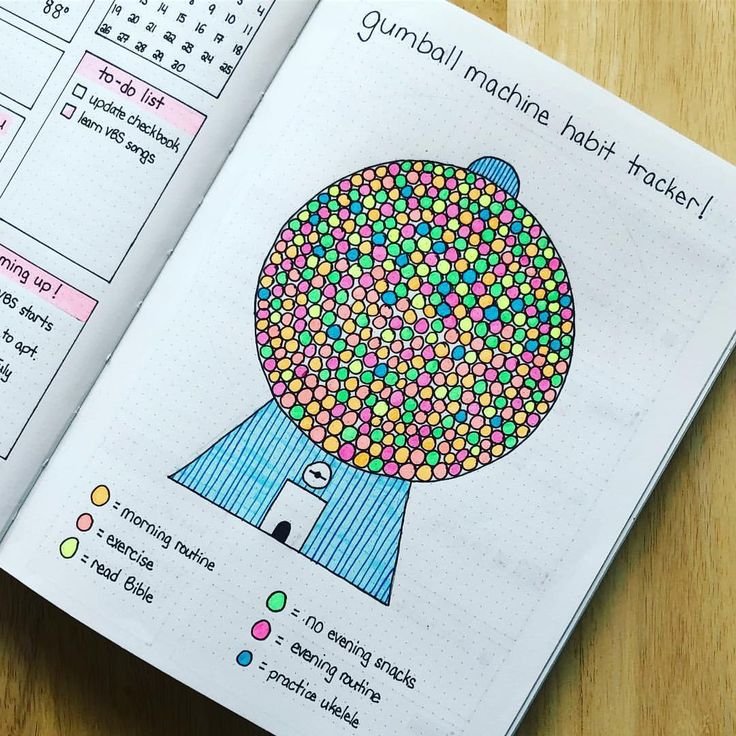 88°
4
5 6 7 8 9 10 11
12 13 14 15 16 17 18
19 20 21 22 23 24 25
26 27 28 29 30
to-do list
update checkbook
learn VBS songs
ming up!
VBS starts
to apt.
gumball machine habit tracker!
= morning routine
= exercise
= read Bible
= no evening snacks
= evening routine
= practice ukelele